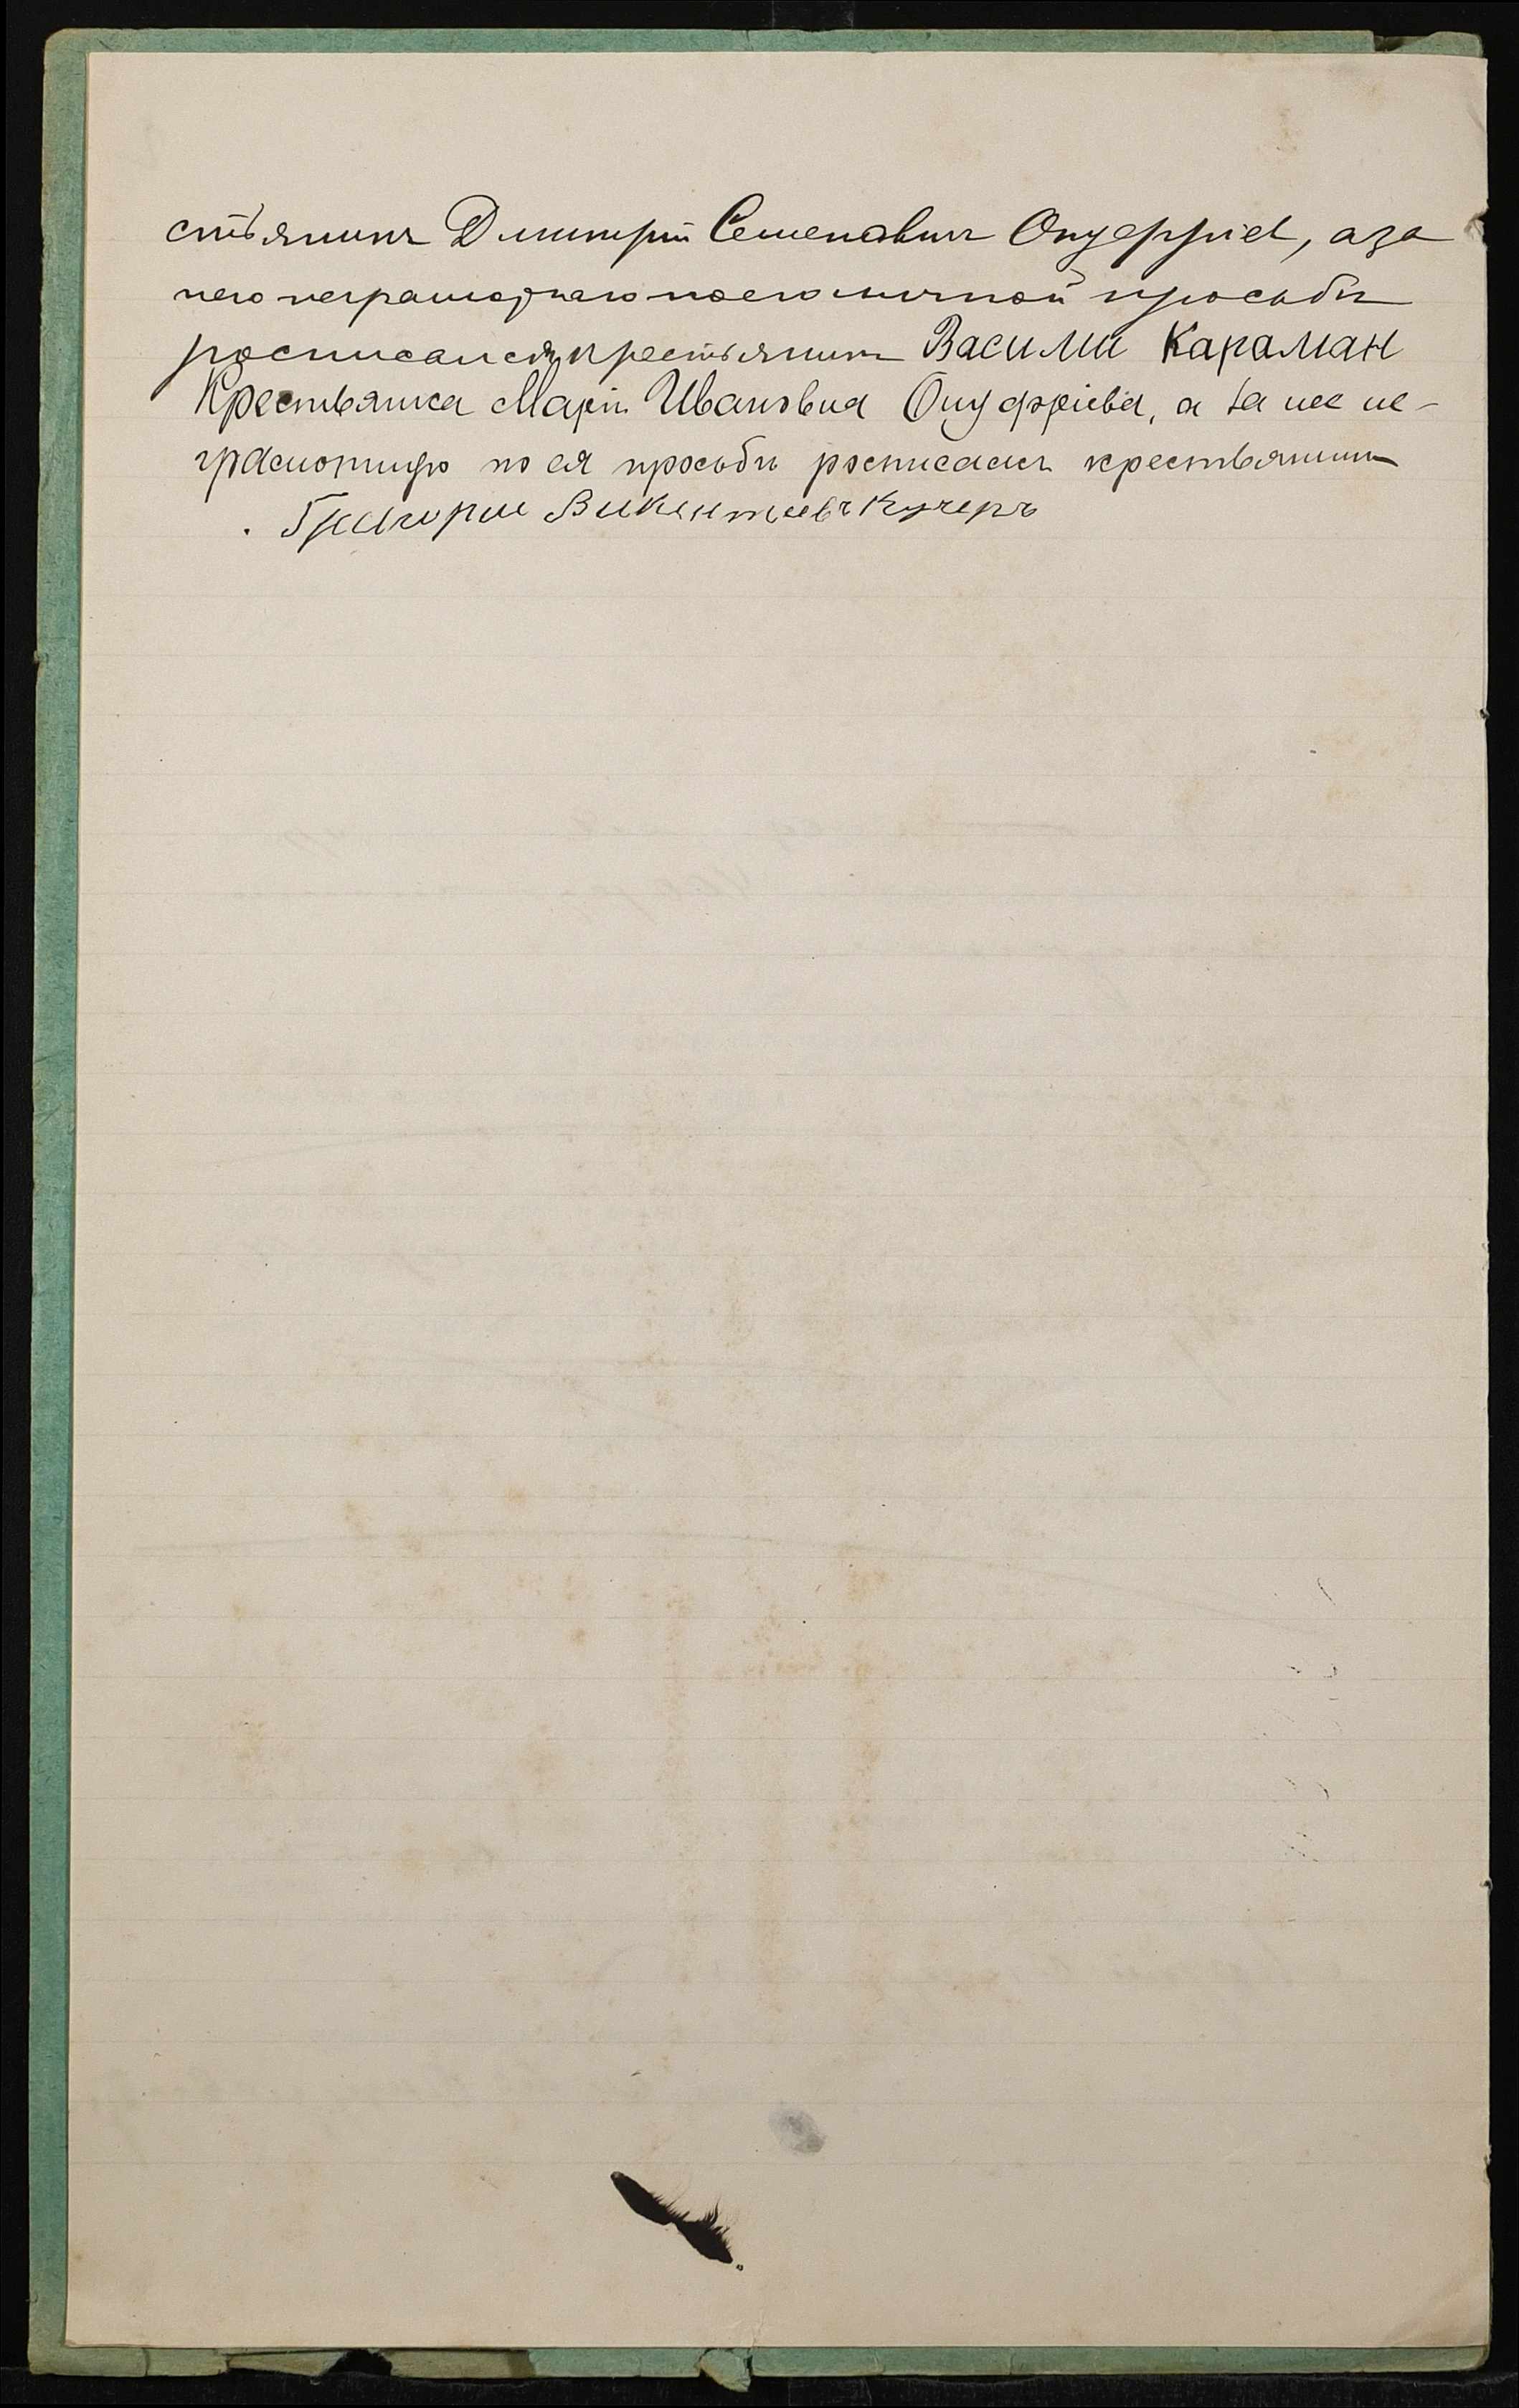 стьянинъ Дмитрій Семеновичъ Онуфріев, а за
него неграмотнаго по его личной просьбѣ
росписался крестьянинъ Васили Караман
Крестьянка Марія Ивановна Онуфріева, а за нее не-
грамотную по ея просьбѣ росписался крестьянинъ
Григорие Викентиевъ Кучеръ